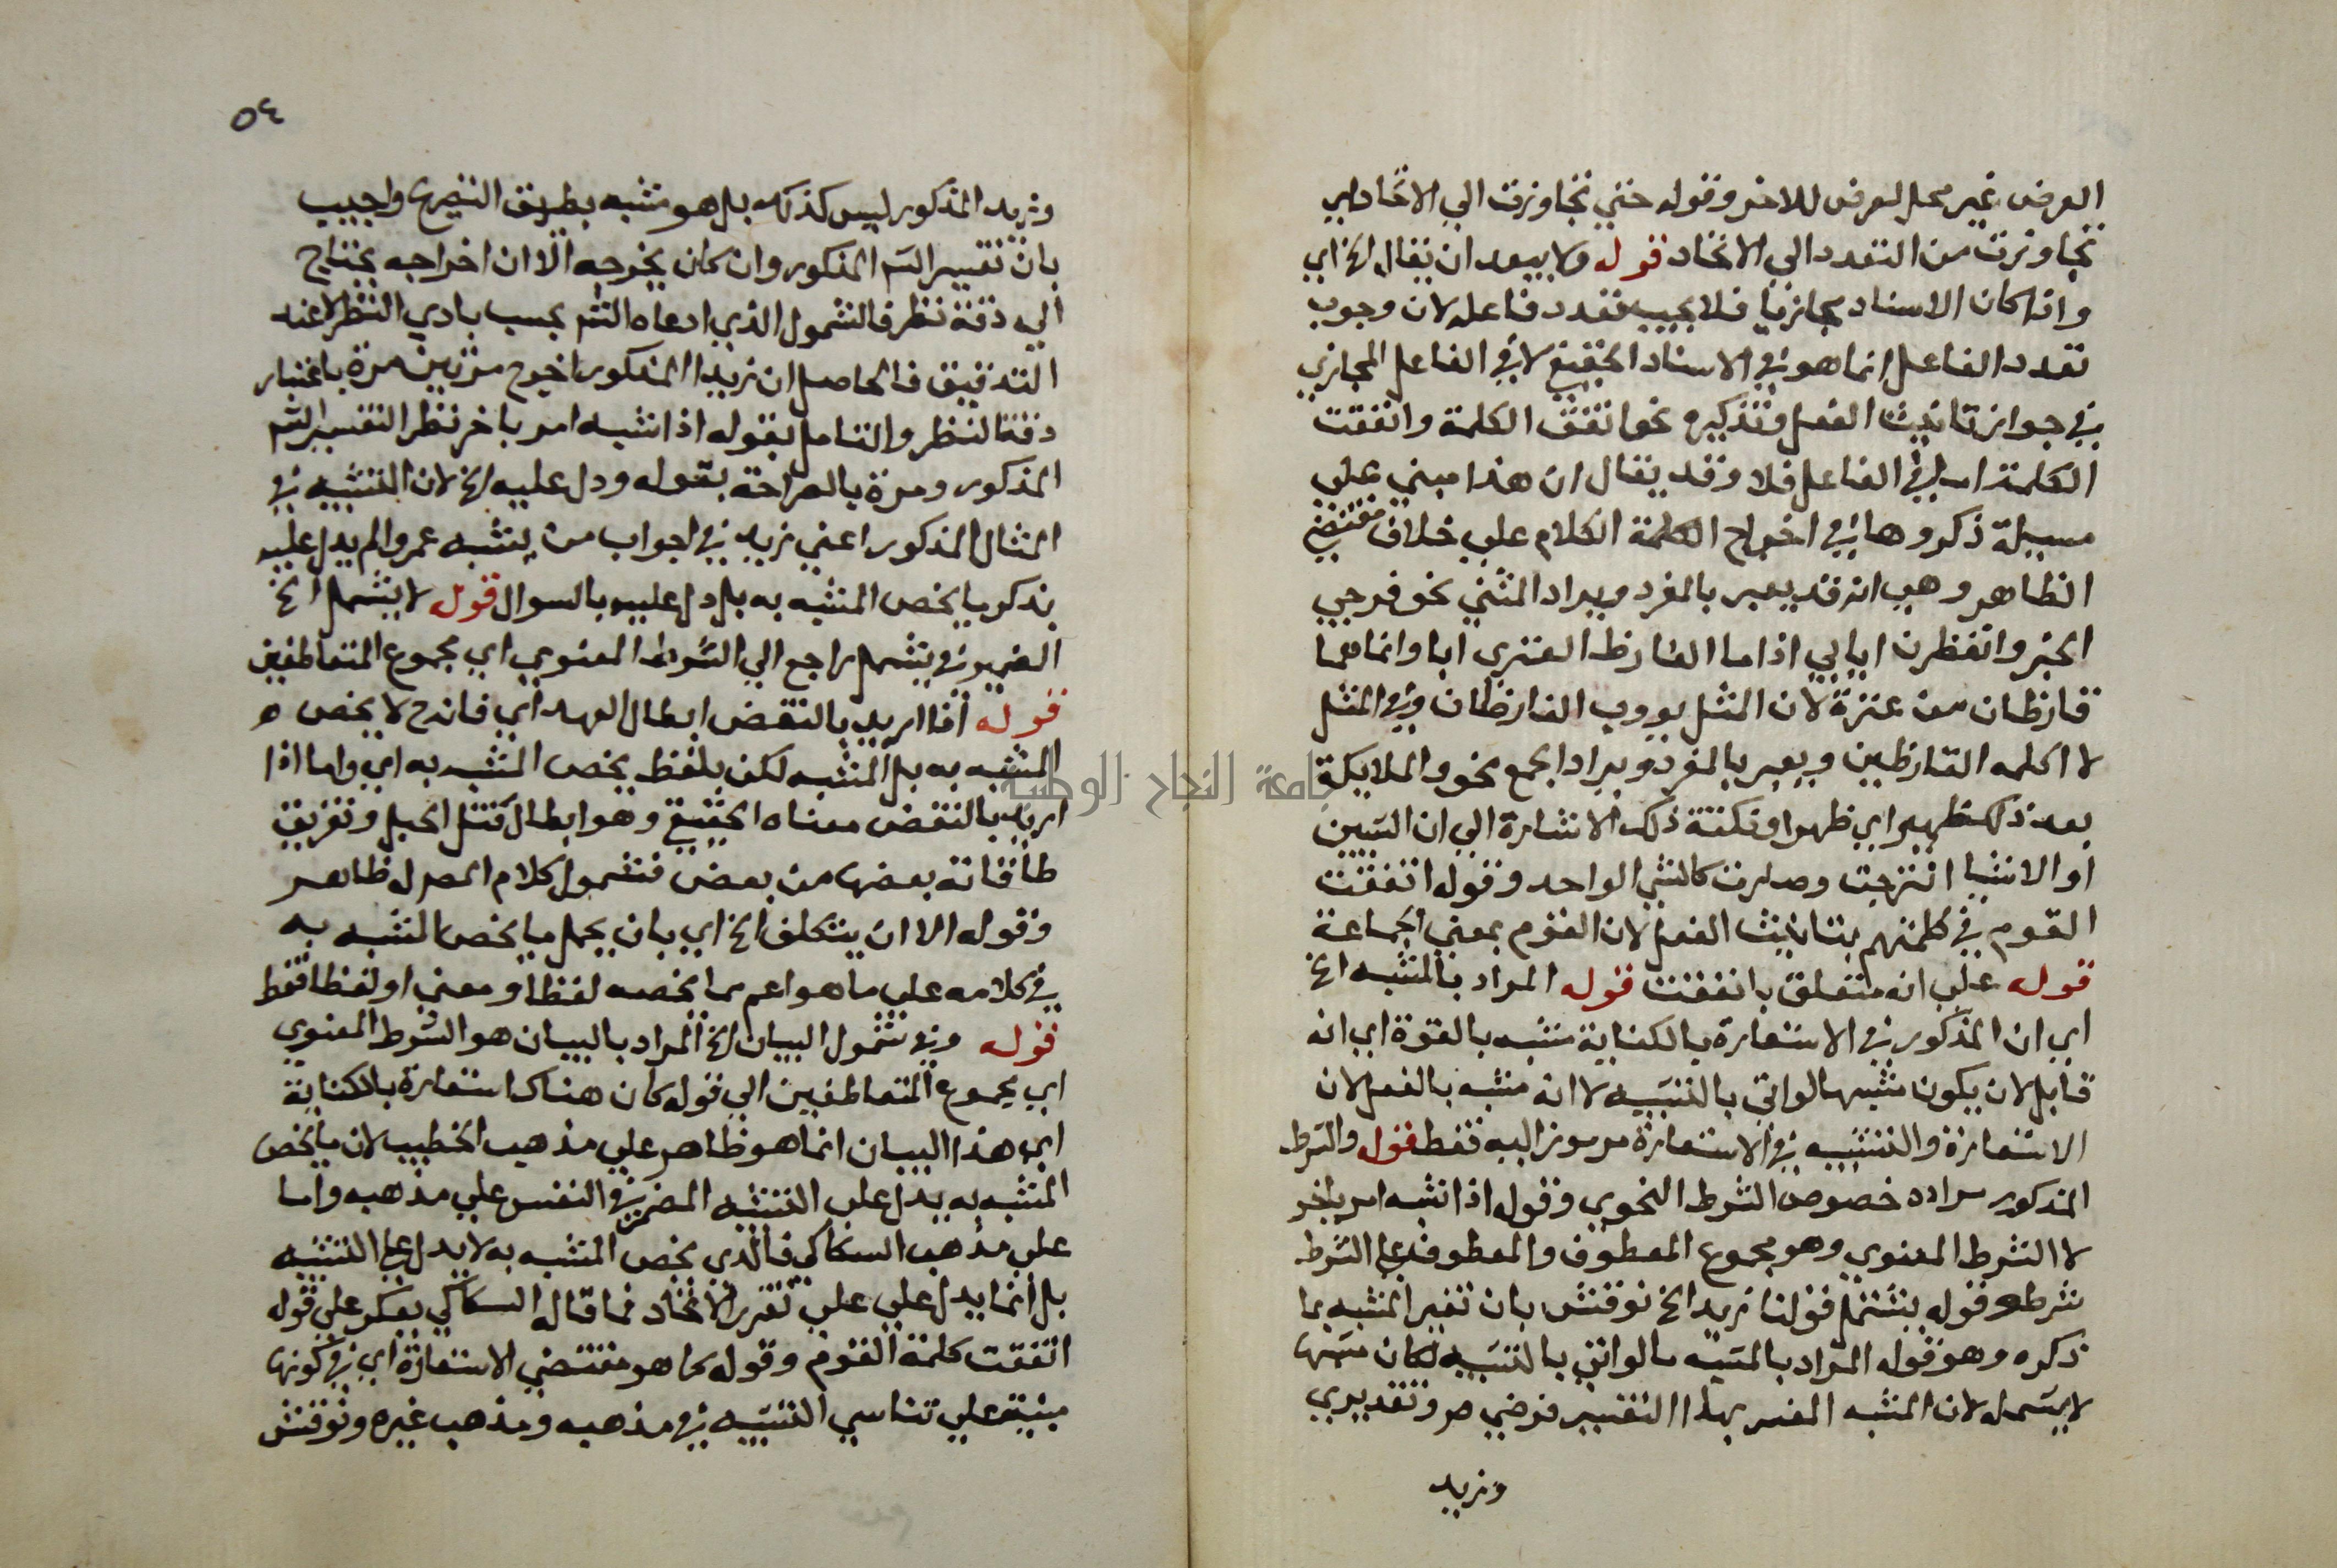 العرض غير محل لعرض للاخر وقوله حتي تجاوزت الي الاتحاد اي
تجاوزت من التعدد الي الاتحاد قوله ولا يبعد ان يقال الخ اي
واذا كان الاسناد مجازيا فلا يجب تعدد فاعله لان وجوب
تعدد الفاعل انما هو في الاسناد الحقيقي لا في الفاعل المجازي
في جواز تانيث الفعل وتذكيره نحو اتفق الكلمة واتفقت
الكلمة اما في الفاعل فلا وقد يقال ان هذا مبني علي
مسيلة ذكروها في اخراج الكلمة الكلام علي خلاف مقتضي
الظاهر وهي انه قد يعبر بالمفرد ويراد المثني نحو فرجي
الخير وانتظرن ايابي اذا ما القارظ العنزي ابا وانما هما
قارظان من عنزة لان المثل يووب القارظان وفي المثل
لا اكلمه القارظين ويعبر بالمفرد ويراد الجمع نحو والملايكة
بعد ذلك ظهير اي ظهرا ونكتة ذلك الاشارة الي ان الشيين
او الاشيا امتزجت وصارت كالشي الواحد وقوله اتفقت
القوم في كلمتهم بتانيث الفعل لان القوم بمعني الجماعة
قوله علي انه متعلق باتفقت قوله المراد بالمشبه الخ
اي ان المذكور في الاستعارة بالكناية مشبه بالقوة اي انه
قابل لان يكون مشبها لو اتي بالتشبيه لا انه مشبه بالفعل لان
الاستعارة والتشبيه في الاستعارة مرموز اليه فقط قوله والشرط
المذكور مراده خصوص الشرط النحوي وقوله اذا شبه امر باخر
لا الشرط المعنوي وهو مجموع المعطوف والمعطوف علي الشرط
شرط وقوله يشتمل قولنا زيد الخ نوقش بان تفسير المشبه بما
ذكره وهو قوله المراد بالمشبه ما لو اتي بالتشبيه لكان مشبها
لا يشمل لان المشبه المفسر بهذا التفسير فرضي وتقديري
وزيد
٥٤
وزيد المذكور ليس كذلك بل هو مشبه بطريق التصريح واجيب
بان تفسير الشم المذكور وان كان يخرجه الا ان اخراجه يحتاج
الي دقة نظر فالشمول الذي ادعاه الشم بحسب بادي النظر لا عند
التدقيق فالحاصل ان زيدا المذكور اخرج مرتين مرة باعتبار
دقة النظر والتامل بقوله اذا شبه امر باخر نظر التفسير الشم
المذكور ومرة بالصراحة بقوله ودل عليه الخ لان التشبيه في
المثال المذكور اعني زيد في جواب من يشبه عمرو الم يدل عليه
بذكر ما يخص المشبه به بل دل عليه بالسوال قوله لا يشمل الخ
الضمير في يشمل راجع الي الشرط المعنوي اي مجموع المتعاطفين
قوله اذا اريد بالنقض ابطال العهد اي فانه ح لا يخص
المشبه به بل المشبه لكن بلفظ يخص المشبه به اي واما اذا
اريد بالنقض معناه الحقيقي وهو ابطال فتل الحبل وتفريق
طاقاته بعضها من بعض فشمول كلام المص له ظاهر
وقوله الا ان يتكلف الخ اي بان يحمل ما يخص المشبه به
في كلامه علي ما هو اعم مما يخصه لفظا ومعني او لفظا فقط
قوله وفي شمول البيان الخ المراد بالبيان هو الشرط المعنوي
اي مجموع المتعاطفين الي قوله كان هناك استعارة بالكناية
اي هذا البيان انما هو ظاهر علي مذهب الخطيب لان ما يخص
المشبه به يدل علي التشبيه المضمر في النفس علي مذهبه واما
علي مذهب السكاكي فالذي يخص المشبه به لا يدل علي التشبيه
بل انما يدل علي علي تقرر الاتحاد فما قال السكاكي يعكر علي قوله
اتفقت كلمة القوم وقوله كما هو مقتضي الاستعارة اي في كونها
مبنية علي تناسي التشبيه في مذهبه ومذهب غيره ونوقش
جامعة النجاح الوطنية